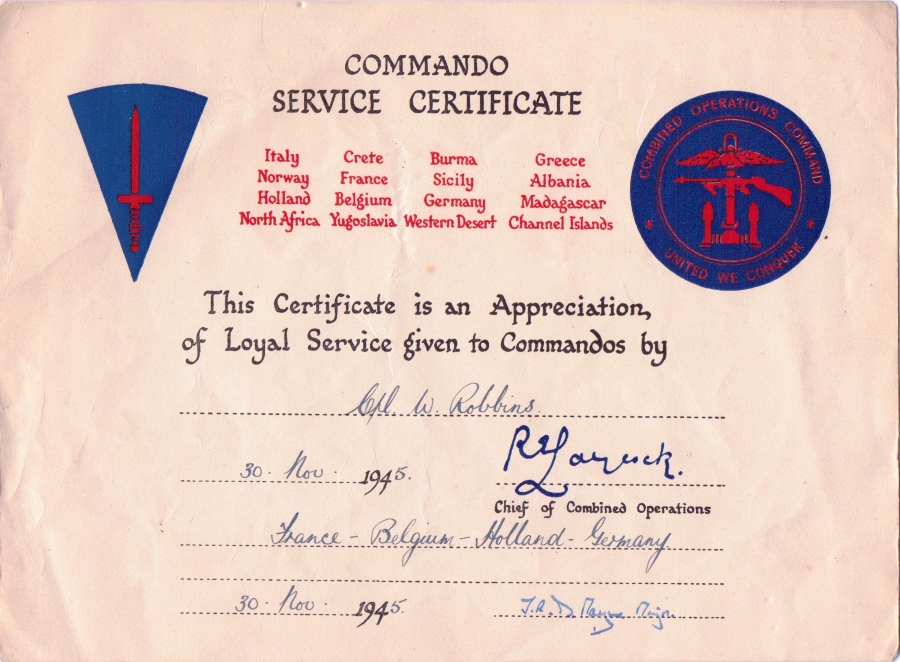 COMMANDO
SERVICE CERTIFICATE
Italy Crete Burma Greece
Norway France Sicily Albania
Holland Belgium Germany Madagascar
North Africa Yugoslavia Western Desert Channel Islands
COMBINED OPERATIONS COMMAND
UNITED WE CONQUER
This Certificate is an Appreciation,
of Loyal Service given to Commandos by
Cpl. W. Robbins.
30 · Nov · 1945.
R E Laycock.
Chief of Combined Operations
France - Belgium - Holland - Germany
30 · Nov · 1945.
Major